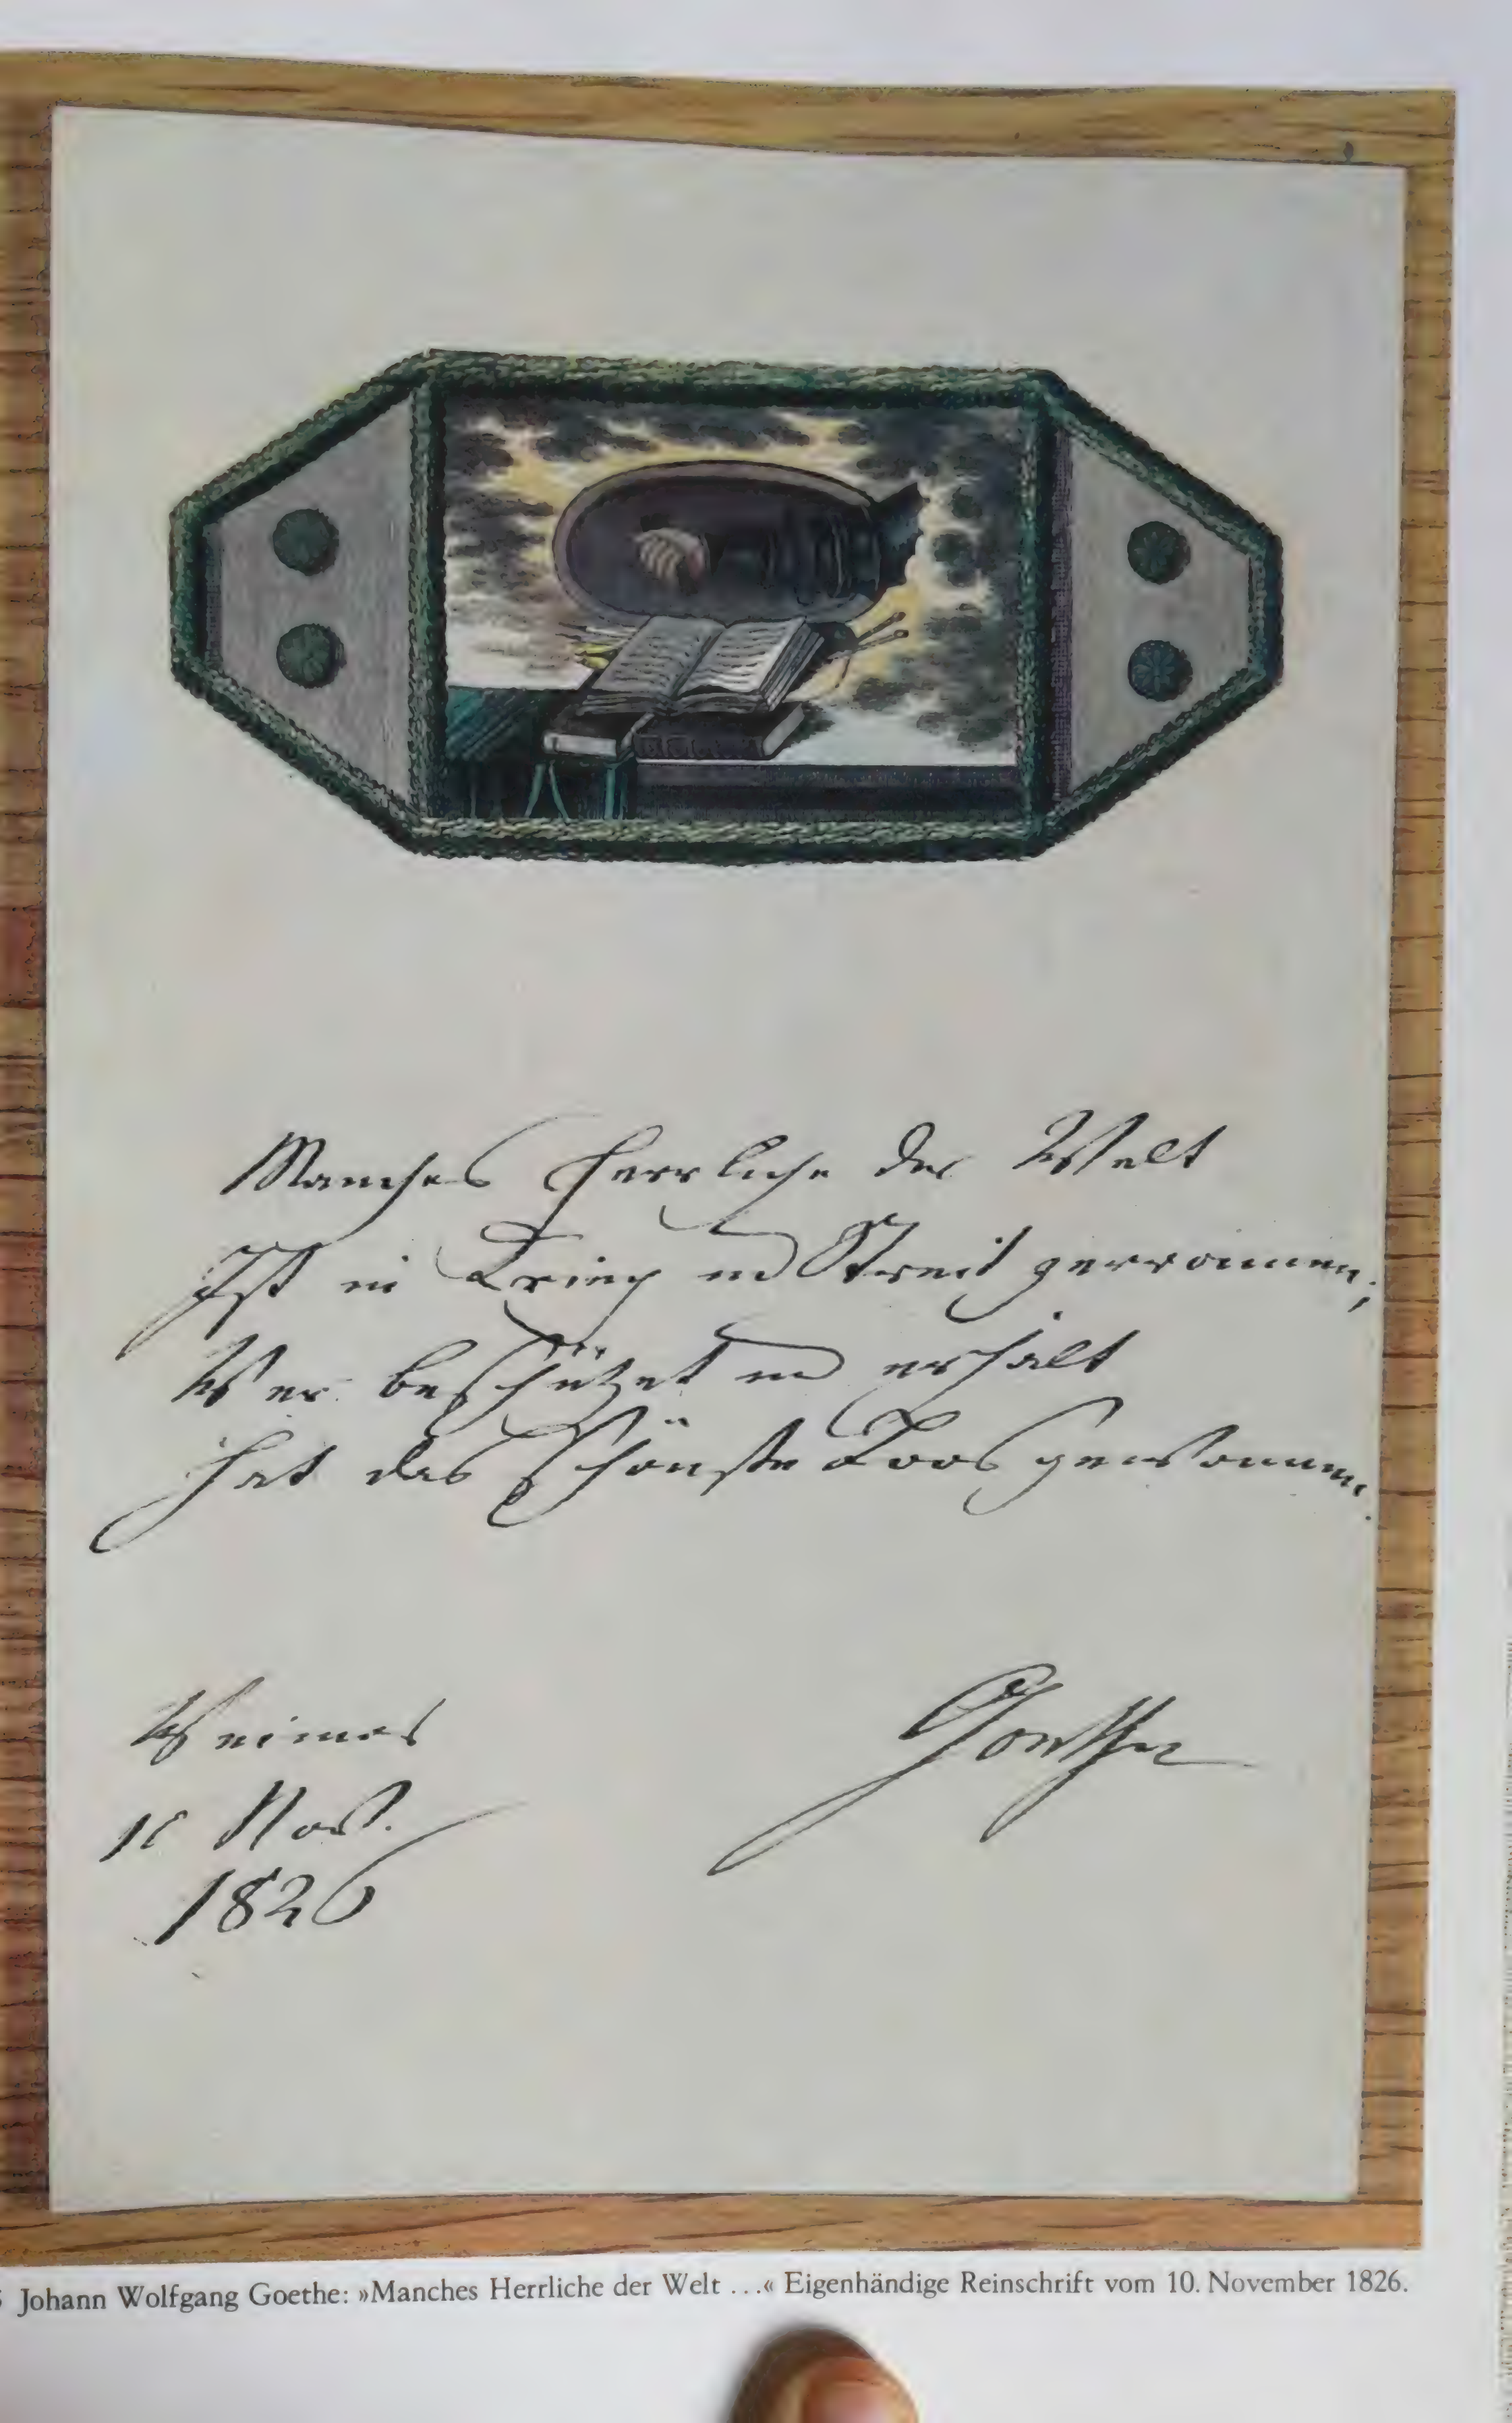 Manches Herrliche der Welt
Ist in Krieg und Streit zerronnen;
Wer beschützet und erhält
Hat das schönste Loos gewonnen.
Weimar
10 Nov.
1826
Goethe
Johann Wolfgang Goethe: »Manches Herrliche der Welt ...« Eigenhändige Reinschrift vom 10. November 1826.